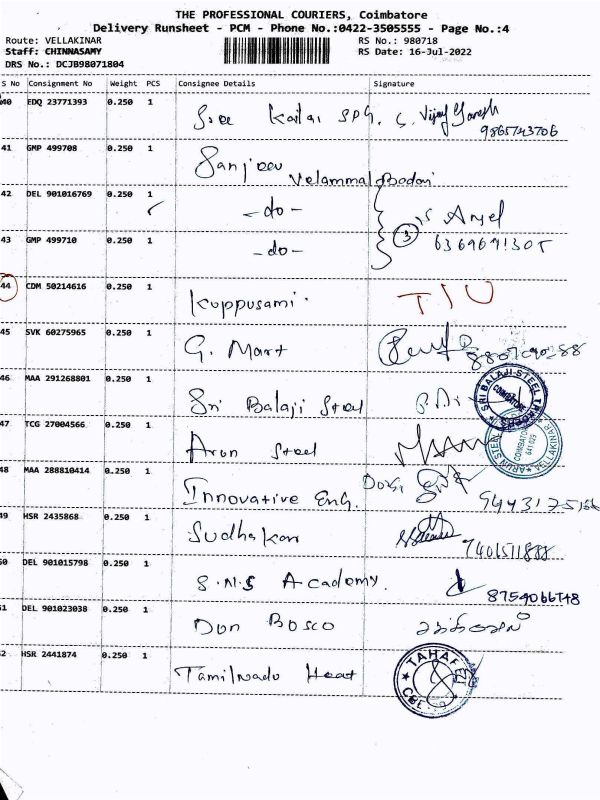 THE PROFESSIONAL COURIERS, Coimbatore
Delivery Runsheet - PCM - Phone No.:0422-3505555 - Page No.:4
Route: VELLAKINAR
RS No.: 980718
Staff: CHINNASAMY
RS Date: 16-Jul-2022
DRS No.: DCJB98071804
S No Consignment No Weight PCS Consignee Details Signature
40 EDQ 23771393 0.250 1 Sree Kailai SPG. S. Vijay Ganesh
9865743706
41 GMP 499708 0.250 1 Sanjeev
Velammal Bodani
42 DEL 901016769 0.250 1 -do-
43 GMP 499710 0.250 1 -do- 3
6369691305
44 CDM 50214616 0.250 1 Kuppusami.
45 SVK 60275965 0.250 1 G. Mart
8807090288
46 MAA 291268801 0.250 1 Sri Balaji Steel
SRI BALAJI STEEL TRADERS
COIMBATORE
47 TCG 27004566 0.250 1 Arun Steel
ARUN STEEL
COIMBATORE
641 029
VELLAKINAR
48 MAA 288810414 0.250 1 Innovative Eng.
49 HSR 2435868 0.250 1 Sudhakar
7401511888
50 DEL 901015798 0.250 1 S.N.S Academy.
51 DEL 901023038 0.250 1 Don Bosco
52 HSR 2441874 0.250 1 Tamilnadu Heat